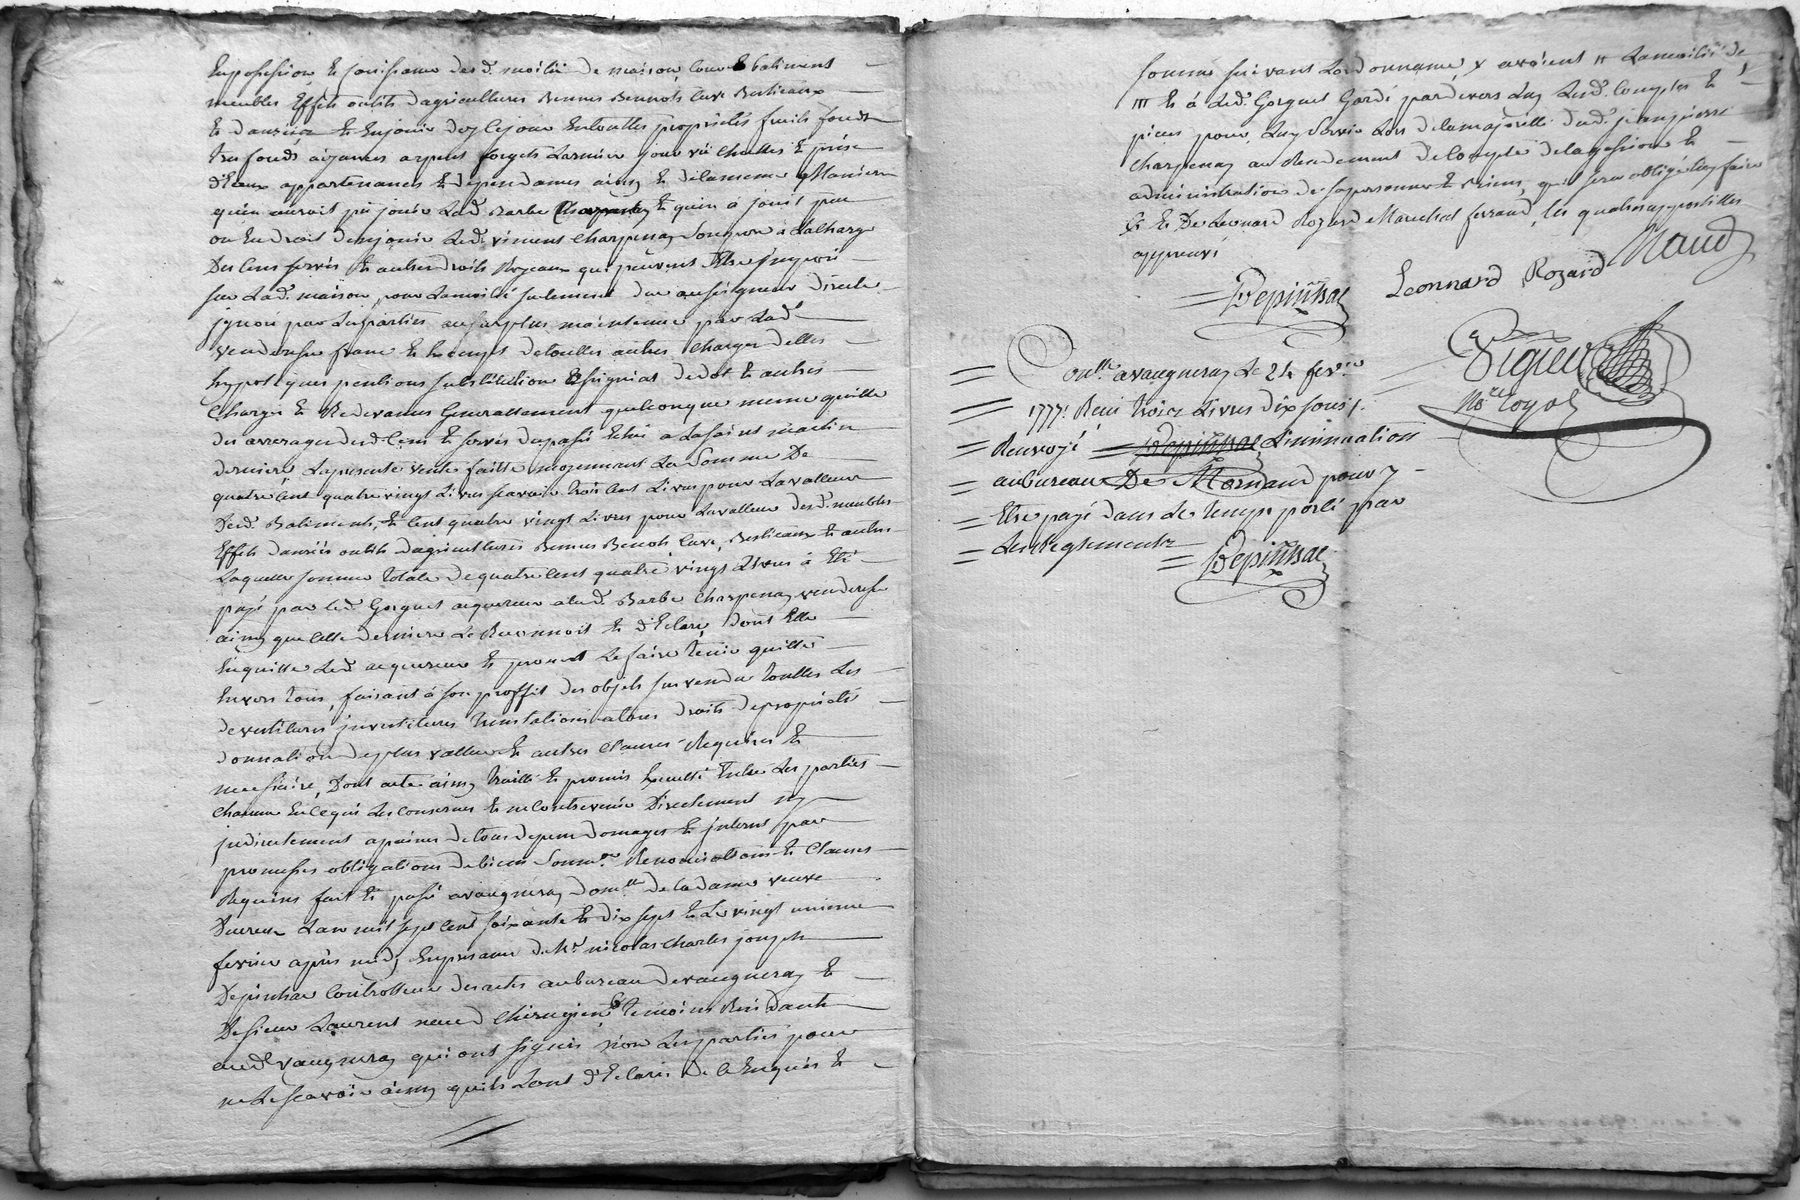 En possession & jouissance desd. moitié de maison, cour & batiment
meubles Effets outils d'agricultures Bennes Bennots Cuve Bestieaux
& danrées & En jouir dez ce jour En touttes proprietés fruits fonds
tres fonds aizances
d'Eaux appartenances & dependances ainsy & de la meme Maniere
qu'en auroit pû jouir Lad. Barbe Charpenay & qu'en a jouit pu
ou En droit d'en jouir Led. vincent Charpenay Son pere à La Charge
Des Cens servis & autres droits Royeaux qui peuvent Etre imposé
sur Lad. maison, pour La moitié seulement du au seigneur direct
ignoré par Les parties au surplus maintenue par Lad.
venderesse franc & Exempt de touttes autres Charges dettes
hypoteques pentions substitution & seguias de dot & autres
Charges & Redevances Generallement quelconque meme quitte
des arrerages desd. Cens & servis du passé Echû a La saint martin
derniere La presente vente faitte moyennant La Somme De
quatre Cent quatre vingt Livres scavoir trois Cent Livres pour La valleur
Desd. Batiments, & Cent quatre vingt Livres pour La valleur desd. meubles
Effets danrées outils d'agricultures Bennes Bennots Cuve, Bestieaux & autres
Laquelle somme totale de quatre Cent quatre vingt Livres à Eté
payé par led. Gorguet acquereur a lad. Barbe Charpenay venderesse
ainsy que Cette derniere Le Reconnoit & d'Eclare, dont Elle
En quitte Led. acquereur & promet Le faire tenir quitte
Envers tous, faisant à son proffit des objets sus vendu touttes Les
devestitures investitures translations a tous droits de proprietés
donnation de plus vallue & autres Clauses Requises &
necessaire, Dont acte ainsy traitté & promis Executté Entre Les parties
Chacune En Ce qui Les Concernes & ne Contrevenir Directement ny
indirectement a peines de tous depens domages & interest par
promesses obligations de biens Soum.ons Renonciations & Clauses
Requises fait & passé a vaugneray dom.lle de la dame veuve
Ducreux L'an mil sept Cent soixante & dix sept & Le vingt unieme
fevrier après midy En presence de Mr. nicolas charles joseph
Depinhac Controlleur des actes au bureau de vaugneray &
De sieur Laurent neud Chirurgien & temoins Residants
aud. vaugneray qui ont signés non Les parties pour
ne Le scavoir ainsy qu'ils L'ont d'Eclaré de Ce Enquis &
somme suivant L'ordonnance, x avoient
III & à Led. Gorguet Gardé par devers Luy Lesd. Comptes &
pieces pour Luy Servir Lors de la majorité dud. jean pierre
Charpenay au Rendement de Compte de la gession &
administration de sa personne & biens, qu'il sera obligé Luy faire
& De Leonard Rozard Marechal ferrand, Les quatre appostilles
approuvé
= Depinhac Leonnard Rozard Naud
Vigier
No.re Royal
= Con.lle a vaugneray Le 24 fev.er
= 1777. Reçu treize Livres dix sous /.
= Renvoyé = Depinhac L'insinuation
= au bureau De Mornand pour y
= Etre payé dans Le temps porté par
= Les Reglements = Depinhac